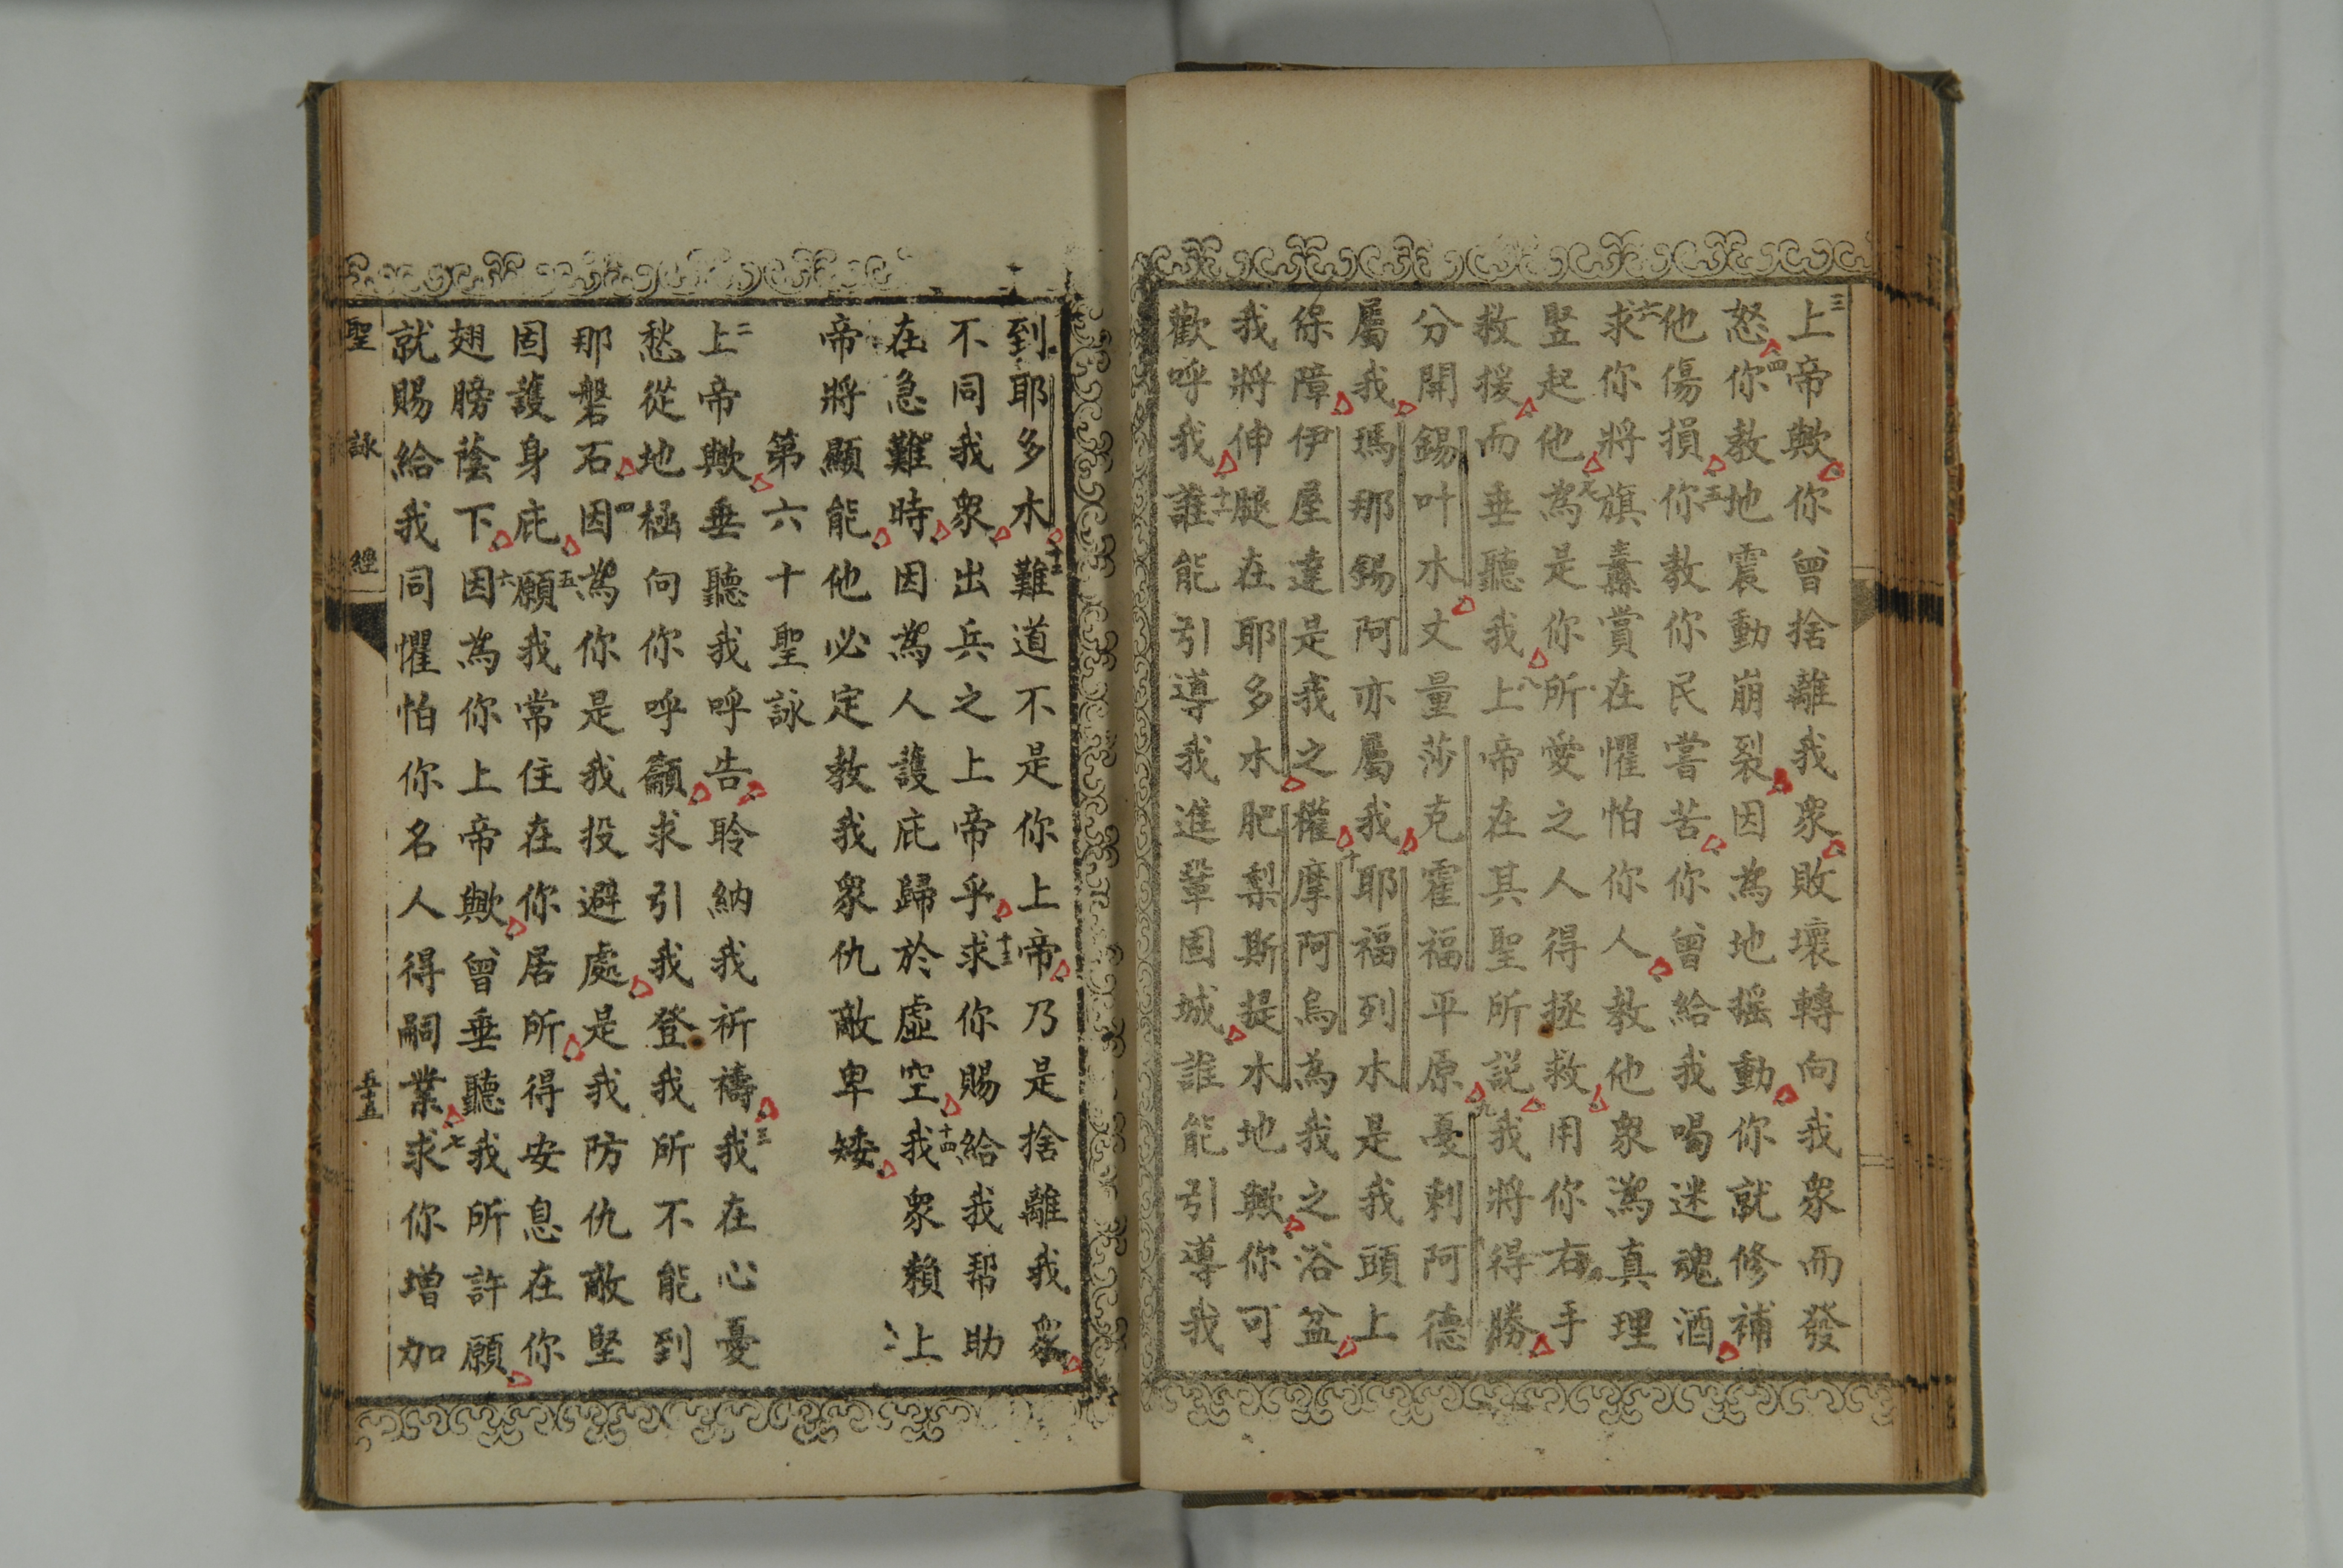 三上帝歟你曾捨離我衆敗壞轉向我衆而發
怒四你教地震動崩裂因為地搖動你就修補
他傷損五你教你民嘗苦你曾給我喝迷魂酒
六求你將旗纛賞在懼怕你人教他衆為真理
竪起他七為是你所愛之人得拯救用你右手
救援而垂聽我八上帝在其聖所説我將得勝
分開錫叶木丈量莎克霍福平原九憂剌阿德
屬我瑪那錫阿亦屬我耶福列木是我頭上
保障伊屋達是我之權十摩阿烏為我之浴盆
我將伸腿在耶多木肥梨斯提木地歟你可
歡呼我十一誰能引導我進鞏固城誰能引導我
到耶多木十二難道不是你上帝乃是捨離我衆
不同我衆出兵之上帝乎十三求你賜給我帮助
在急難時因為人護庇歸於虛空十四我衆賴上
帝將顯能他必定教我衆仇敵卑矮
第六十聖詠
二上帝歟垂聽我呼告聆納我祈禱三我在心憂
愁從地極向你呼籲求引我登我所不能到
那磐石四因為你是我投避處是我防仇敵堅
固護身庇五願我常住在你居所得安息在你
翅膀蔭下六因為你上帝歟曾垂聽我所許願
就賜給我同懼怕你名人得嗣業七求你增加
聖詠經 五十五